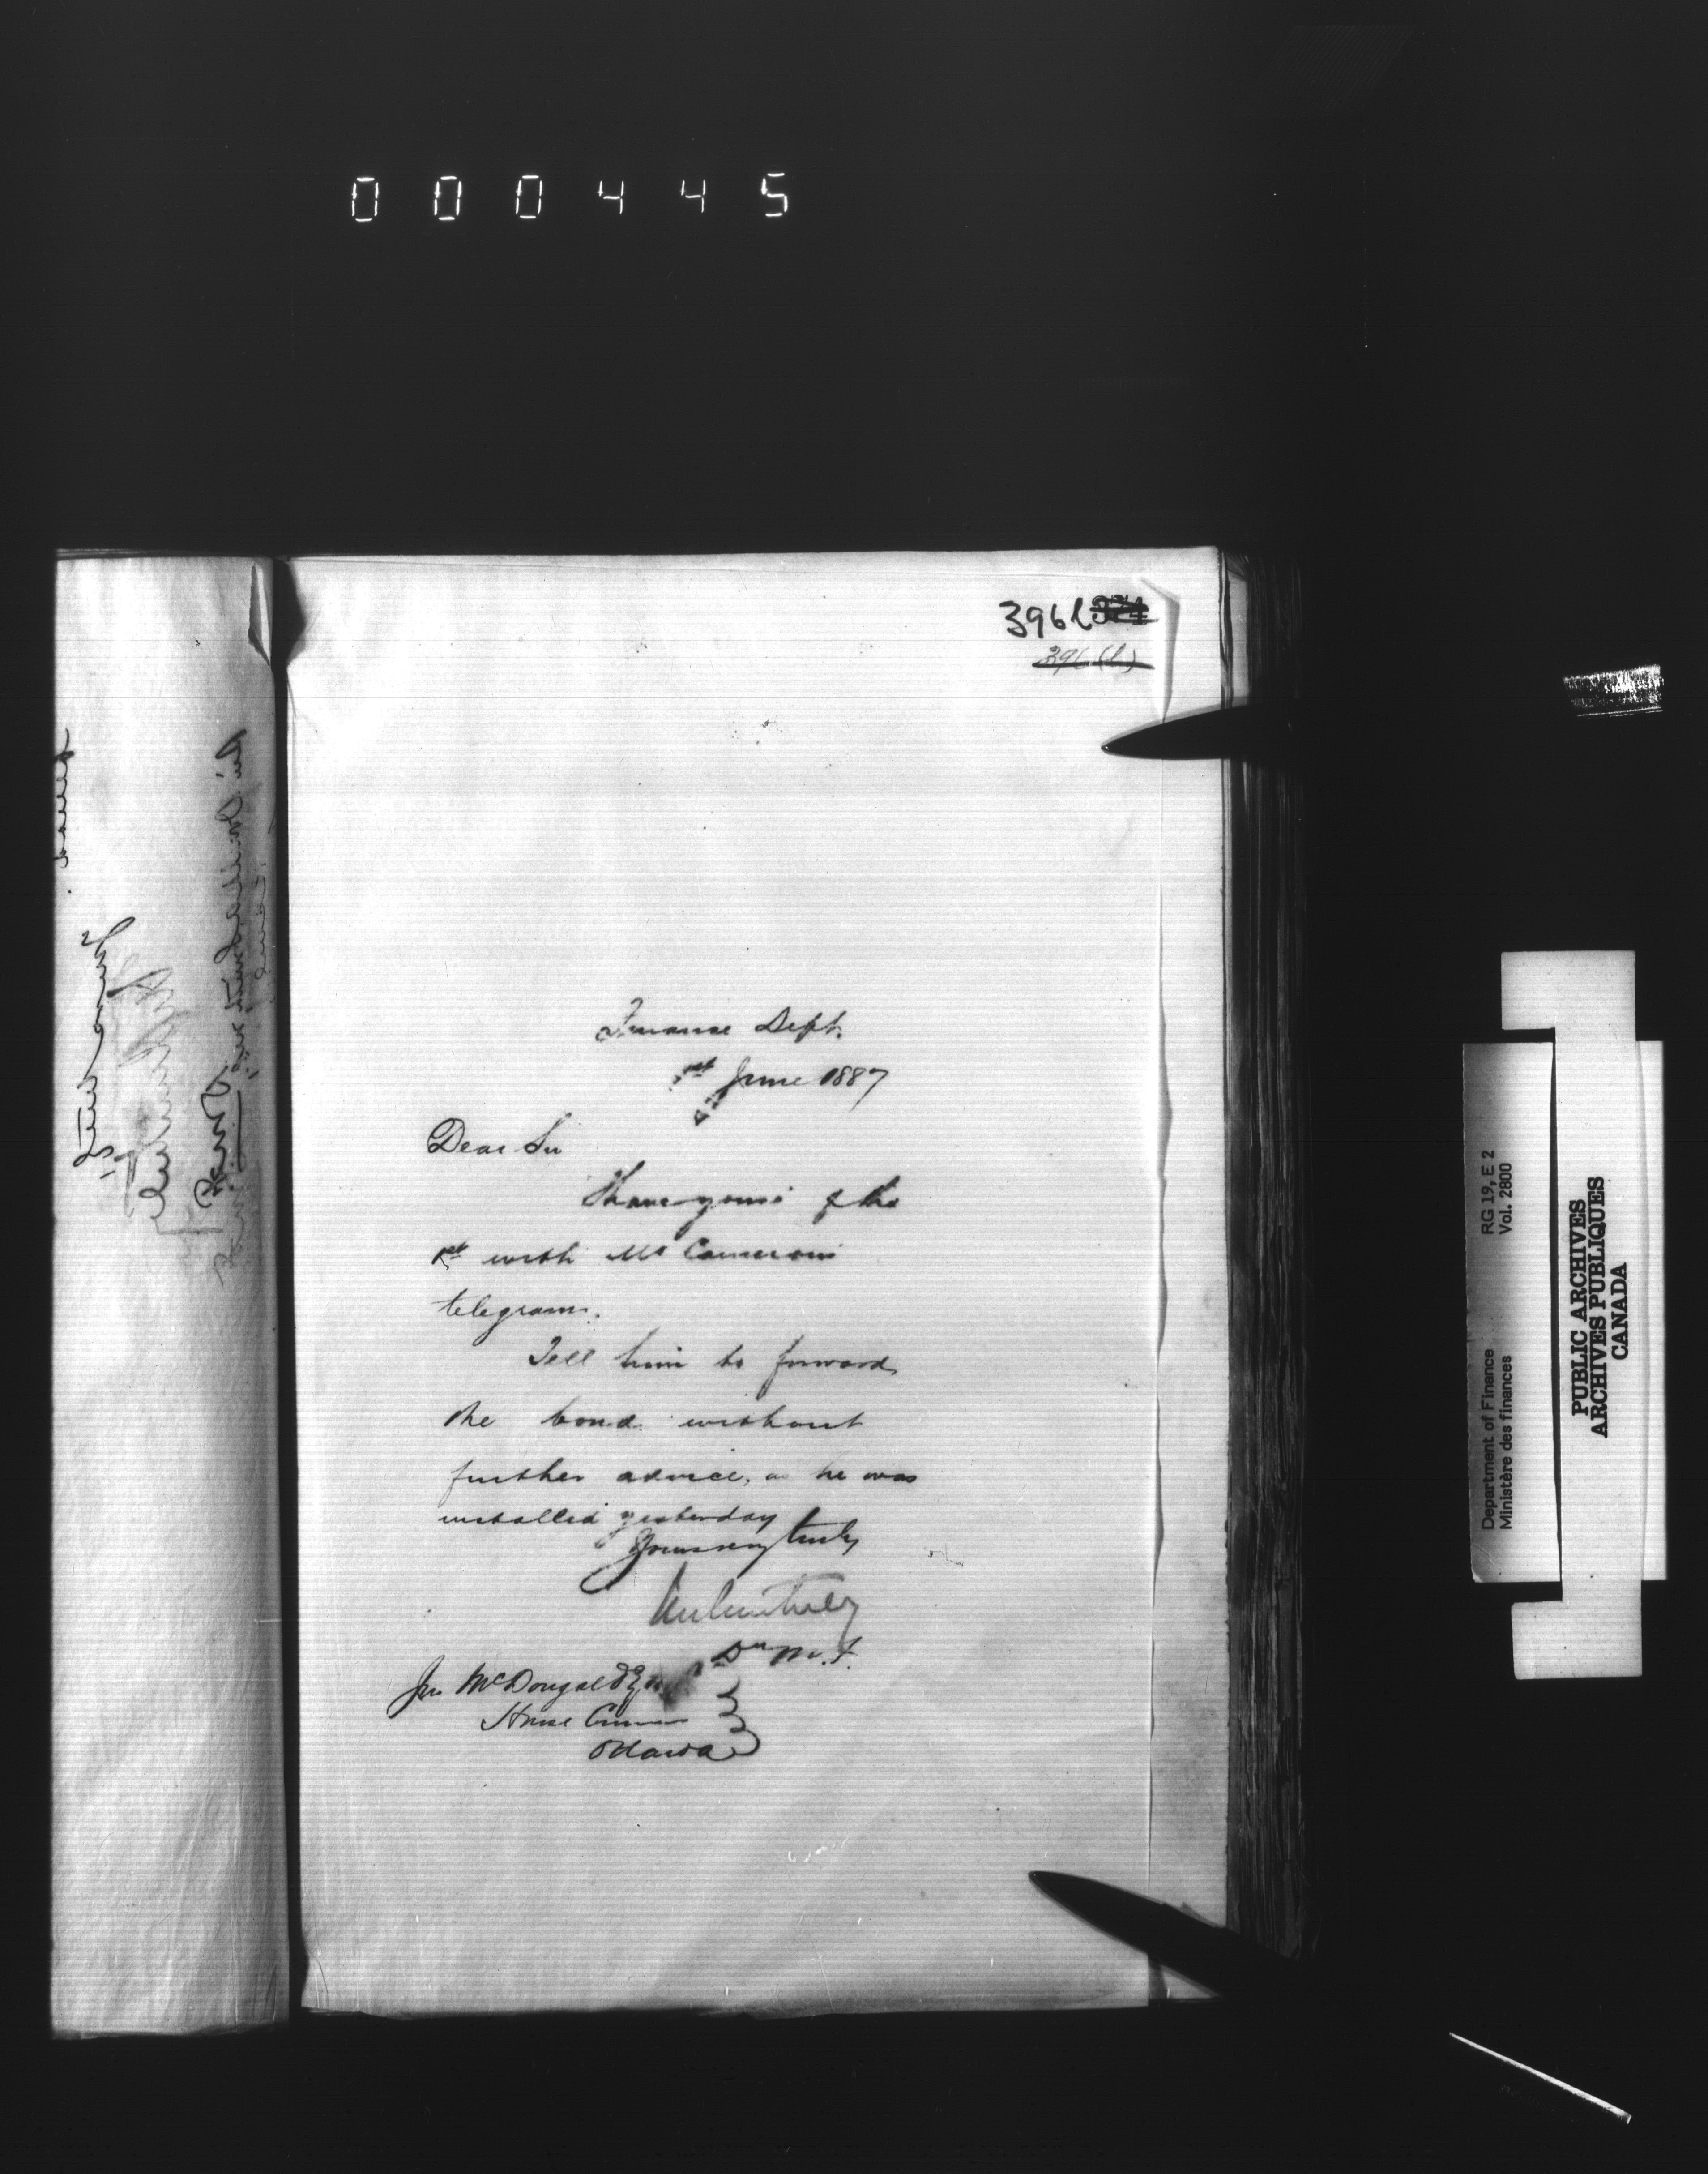 000445
396l 374
396(l)
Finance Dept.
1st June 1887
Dear Sir
I have yours of the
1st with Mr Camerons
telegram.
Tell him to forward
the bond without
further advice, as he was
installed yesterday
Yours very truly
DMF
Jno McDougald Esq
House Commons
Ottawa
Department of Finance RG 19, E 2
Ministère des finances Vol. 2800
PUBLIC ARCHIVES
ARCHIVES PUBLIQUES
CANADA